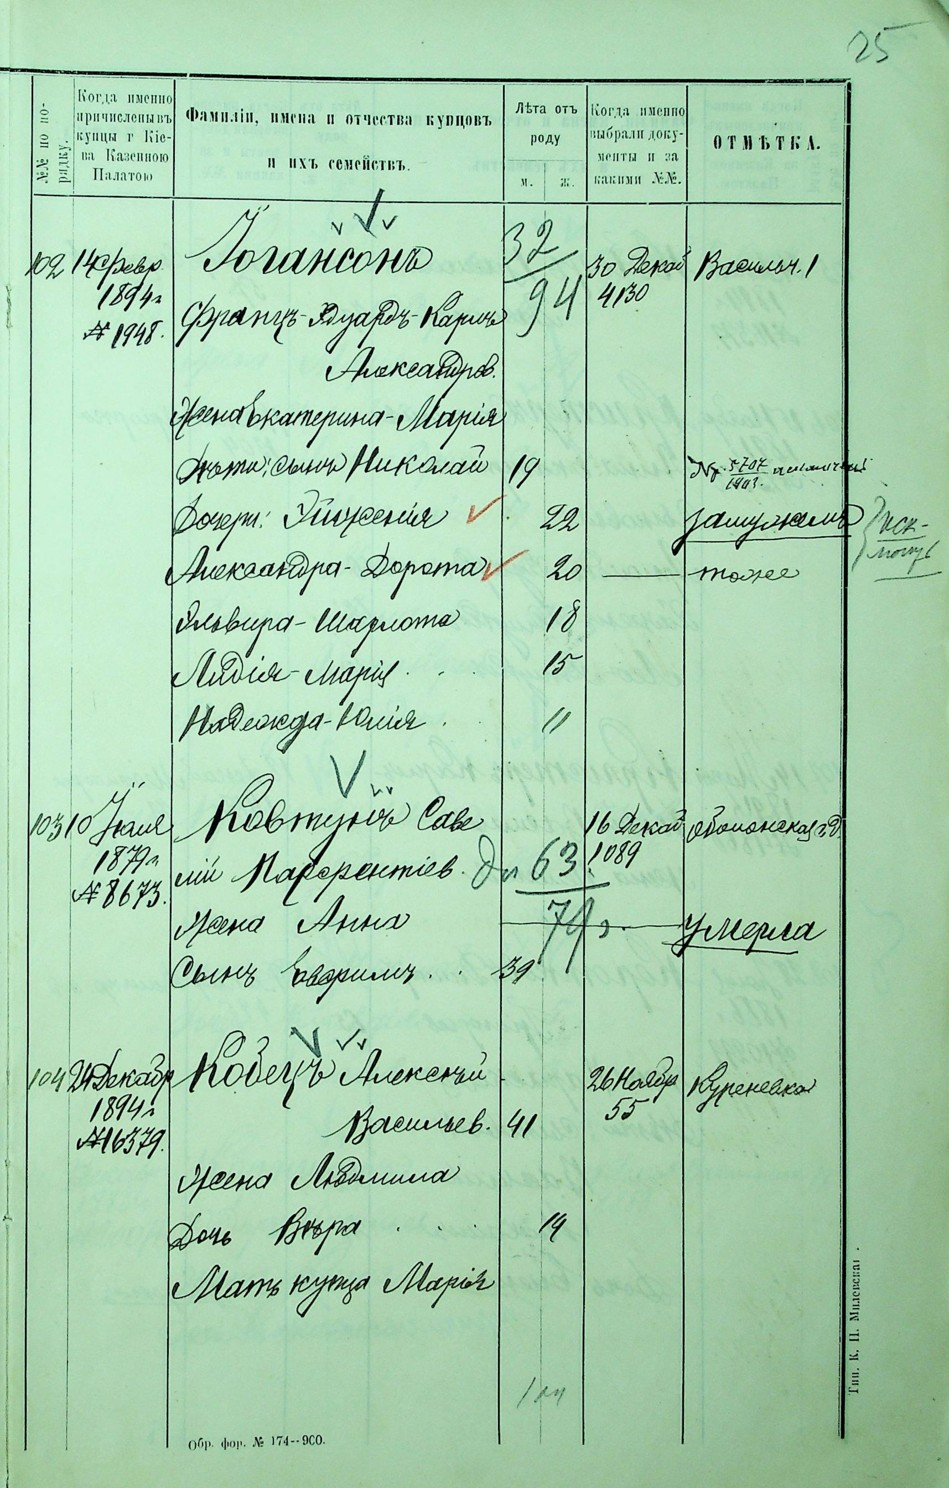 25
№№ по порядку.
Когда именно причислены въ купцы г Кіева Казенною Палатою
Фамиліи, имена и отчества купцовъ и ихъ семействъ.
Лѣта отъ роду
м. ж.
Когда именно выбрали документы и за какими №№.
ОТМѢТКА.
102 14 Февр. Іогансонъ 32 30 Декаб Васильк. 1
1894 г. 94 4130
№ 1948. Францъ-Эдуардъ-Карлъ
Александров.
Жена Екатерина-Марія
Дѣти: сынъ Николай 19 № 5707
1903.
Дочери: Эйженія 22 замужемъ
Александра-Доротa 20 тоже
Эльвира-Шарлота 18
Лидія-Марія 15
Надежда-Юлія 11
103 10 Іюля Ковтунъ Саве 16 Декаб Оболонская
1879 г. лій Парфентіев. 63 1089
№ 8673.
Жена Анна 74 умерла
Сынъ 39
104 24 Декабр Кобецъ Алексѣй 26 Ноябр Куреневка
1894 г. Васильев. 41 55
№ 16379.
Жена Людмила
Дочь Вѣра 14
Мать купца Марія
Обр. фор. № 174--900.
Тип. К. П. Милевскаг.